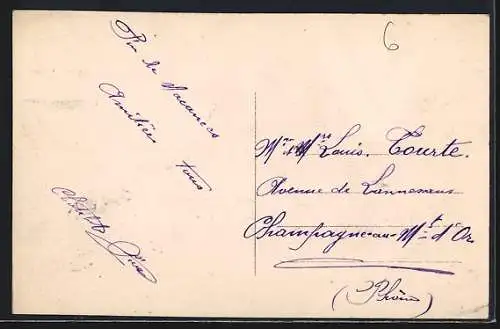 Fin de Vacances
Amitiés
tous
6
Mr & Mme Louis. Tourte.
Avenue de Lannemezan
Champagne-au-Mt d'Or
(Rhône)